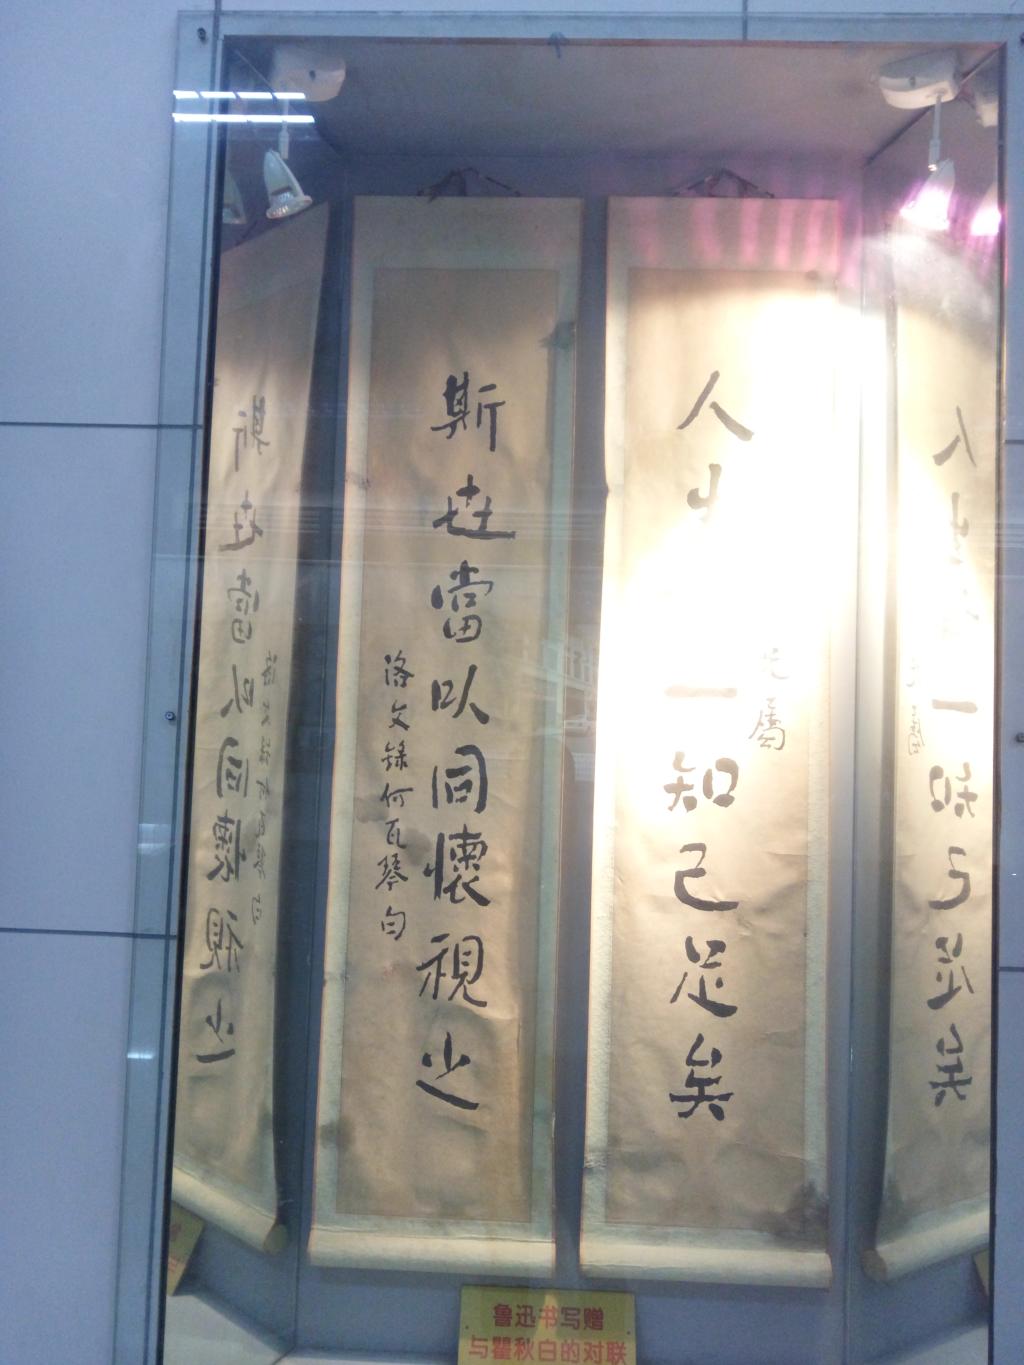 人生一知己足矣
兄屬
斯世當以同懷視之
洛文錄何瓦琴句
鲁迅书写赠
与瞿秋白的对联